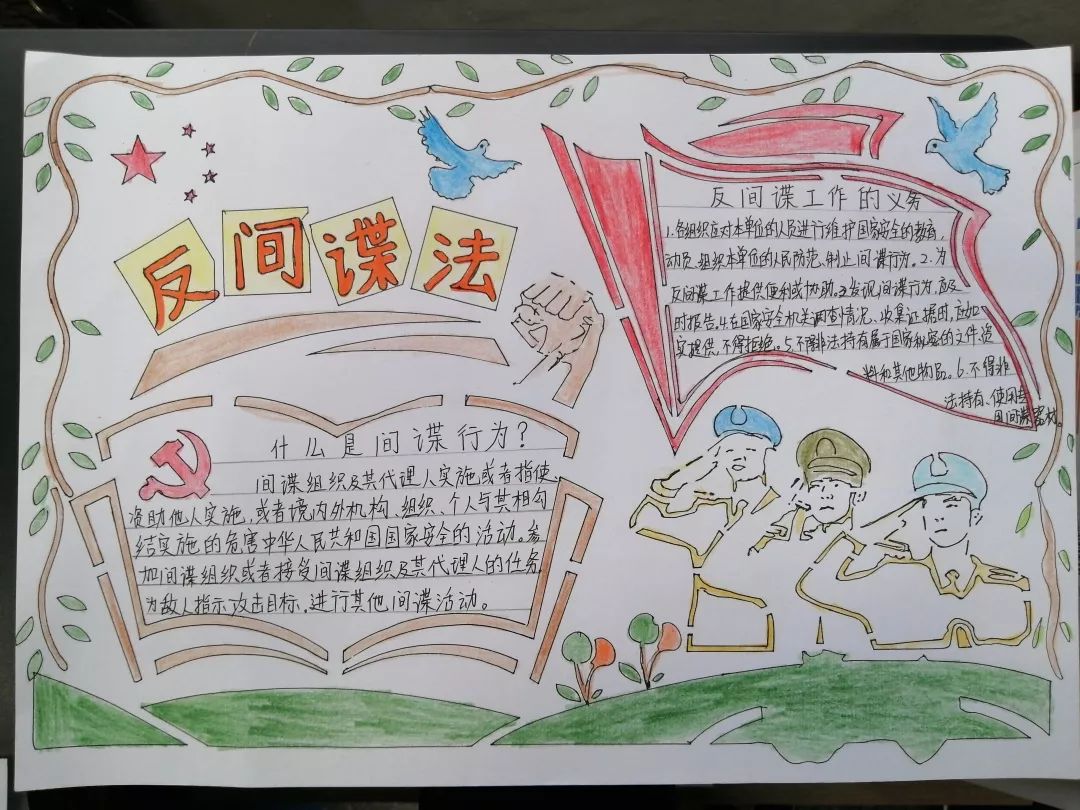 反间谍法
什么是间谍行为?
间谍组织及其代理人实施或者指使、
资助他人实施,或者境内外机构、组织、个人与其相勾
结实施的危害中华人民共和国国家安全的活动。参
加间谍组织或者接受间谍组织及其代理人的任务
为敌人指示攻击目标,进行其他间谍活动。
反间谍工作的义务
1.各组织应对本单位的人员进行维护国家安全的教育,
动员、组织本单位的人民防范、制止间谍行为。2.为
反间谍工作提供便利或协助。3.发现间谍行为,应及
时报告。4.在国家安全机关调查情况、收集证据时,应如
实提供,不得拒绝。5.不得非法持有属于国家秘密的文件、资
料和其他物品。6.不得非
法持有、使用专
用间谍器材。